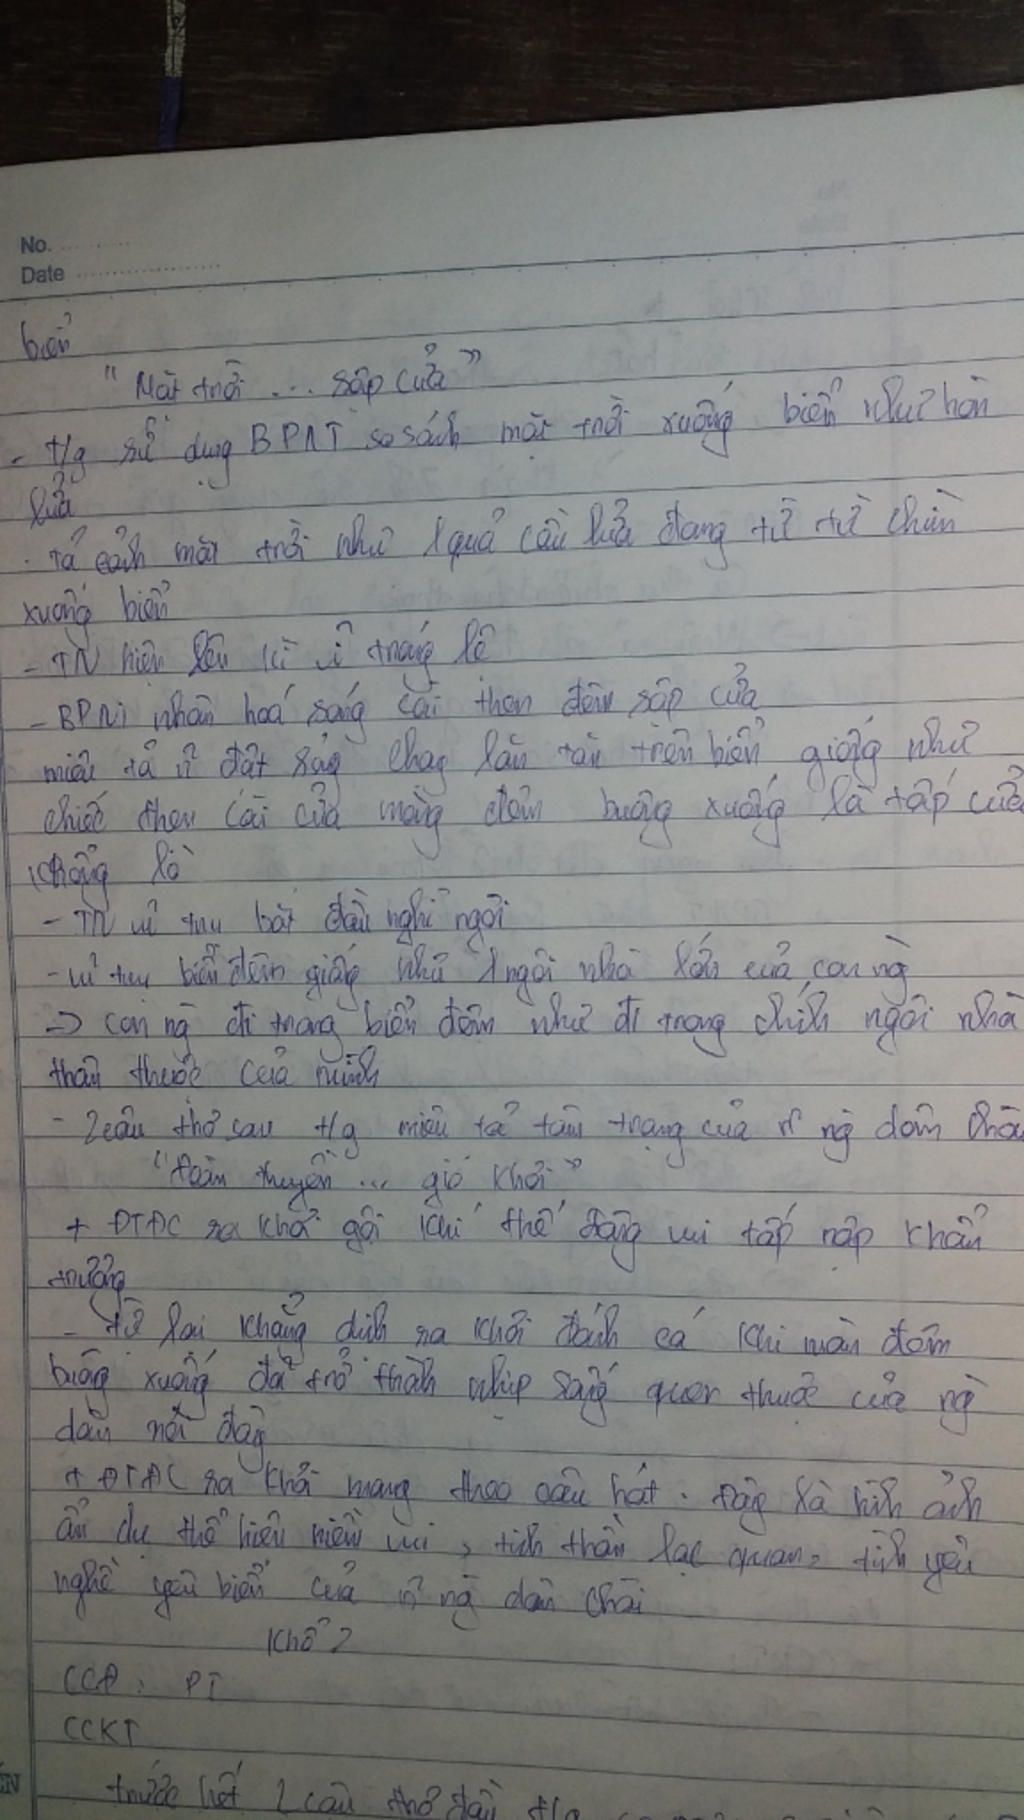 No.
Date
biển
"Mặt trời ... sập cửa"
- t/g sử dụng BPNT so sánh mặt trời xuống biển như hòn
lửa
. tả cảnh mặt trời như 1 quả cầu lửa đang từ từ chìm
xuống biển
- TN hiện lên kì vĩ tráng lệ
- BPNT nhân hoá sóng cài then đêm sập cửa
miêu tả đợt sóng chạy lăn tăn trên biển giống như
chiếc then cài của màng đêm buông xuống là tấp cửa
khổng lồ
- TN vũ trụ bắt đầu nghỉ ngơi
- vũ trụ biển đêm giống như 1 ngôi nhà lớn của con ng
=> con ng đi trong biển đêm như đi trong chính ngôi nhà
thân thuộc của mình
- 2 câu thơ sau t/g miêu tả tâm trạng của ng dân chài
"Đoàn thuyền ... gió khơi"
+ ĐTĐC ra khơi gợi khí thế đông vui tấp nập khẩn
trương
- từ lại khẳng định ra khơi đánh cá khi màn đêm
buông xuống đã trở thành nhịp sống quen thuộc của ng
dân nơi đây
+ ĐTĐC ra khơi mang theo câu hát. Đây là hình ảnh
ẩn dụ thể hiện niềm vui, tinh thần lạc quan, tình yêu
nghề yêu biển của ng dân chài
Khổ 2
CCĐ: PT
CCKT
trước hết 2 câu thơ đầu t/g